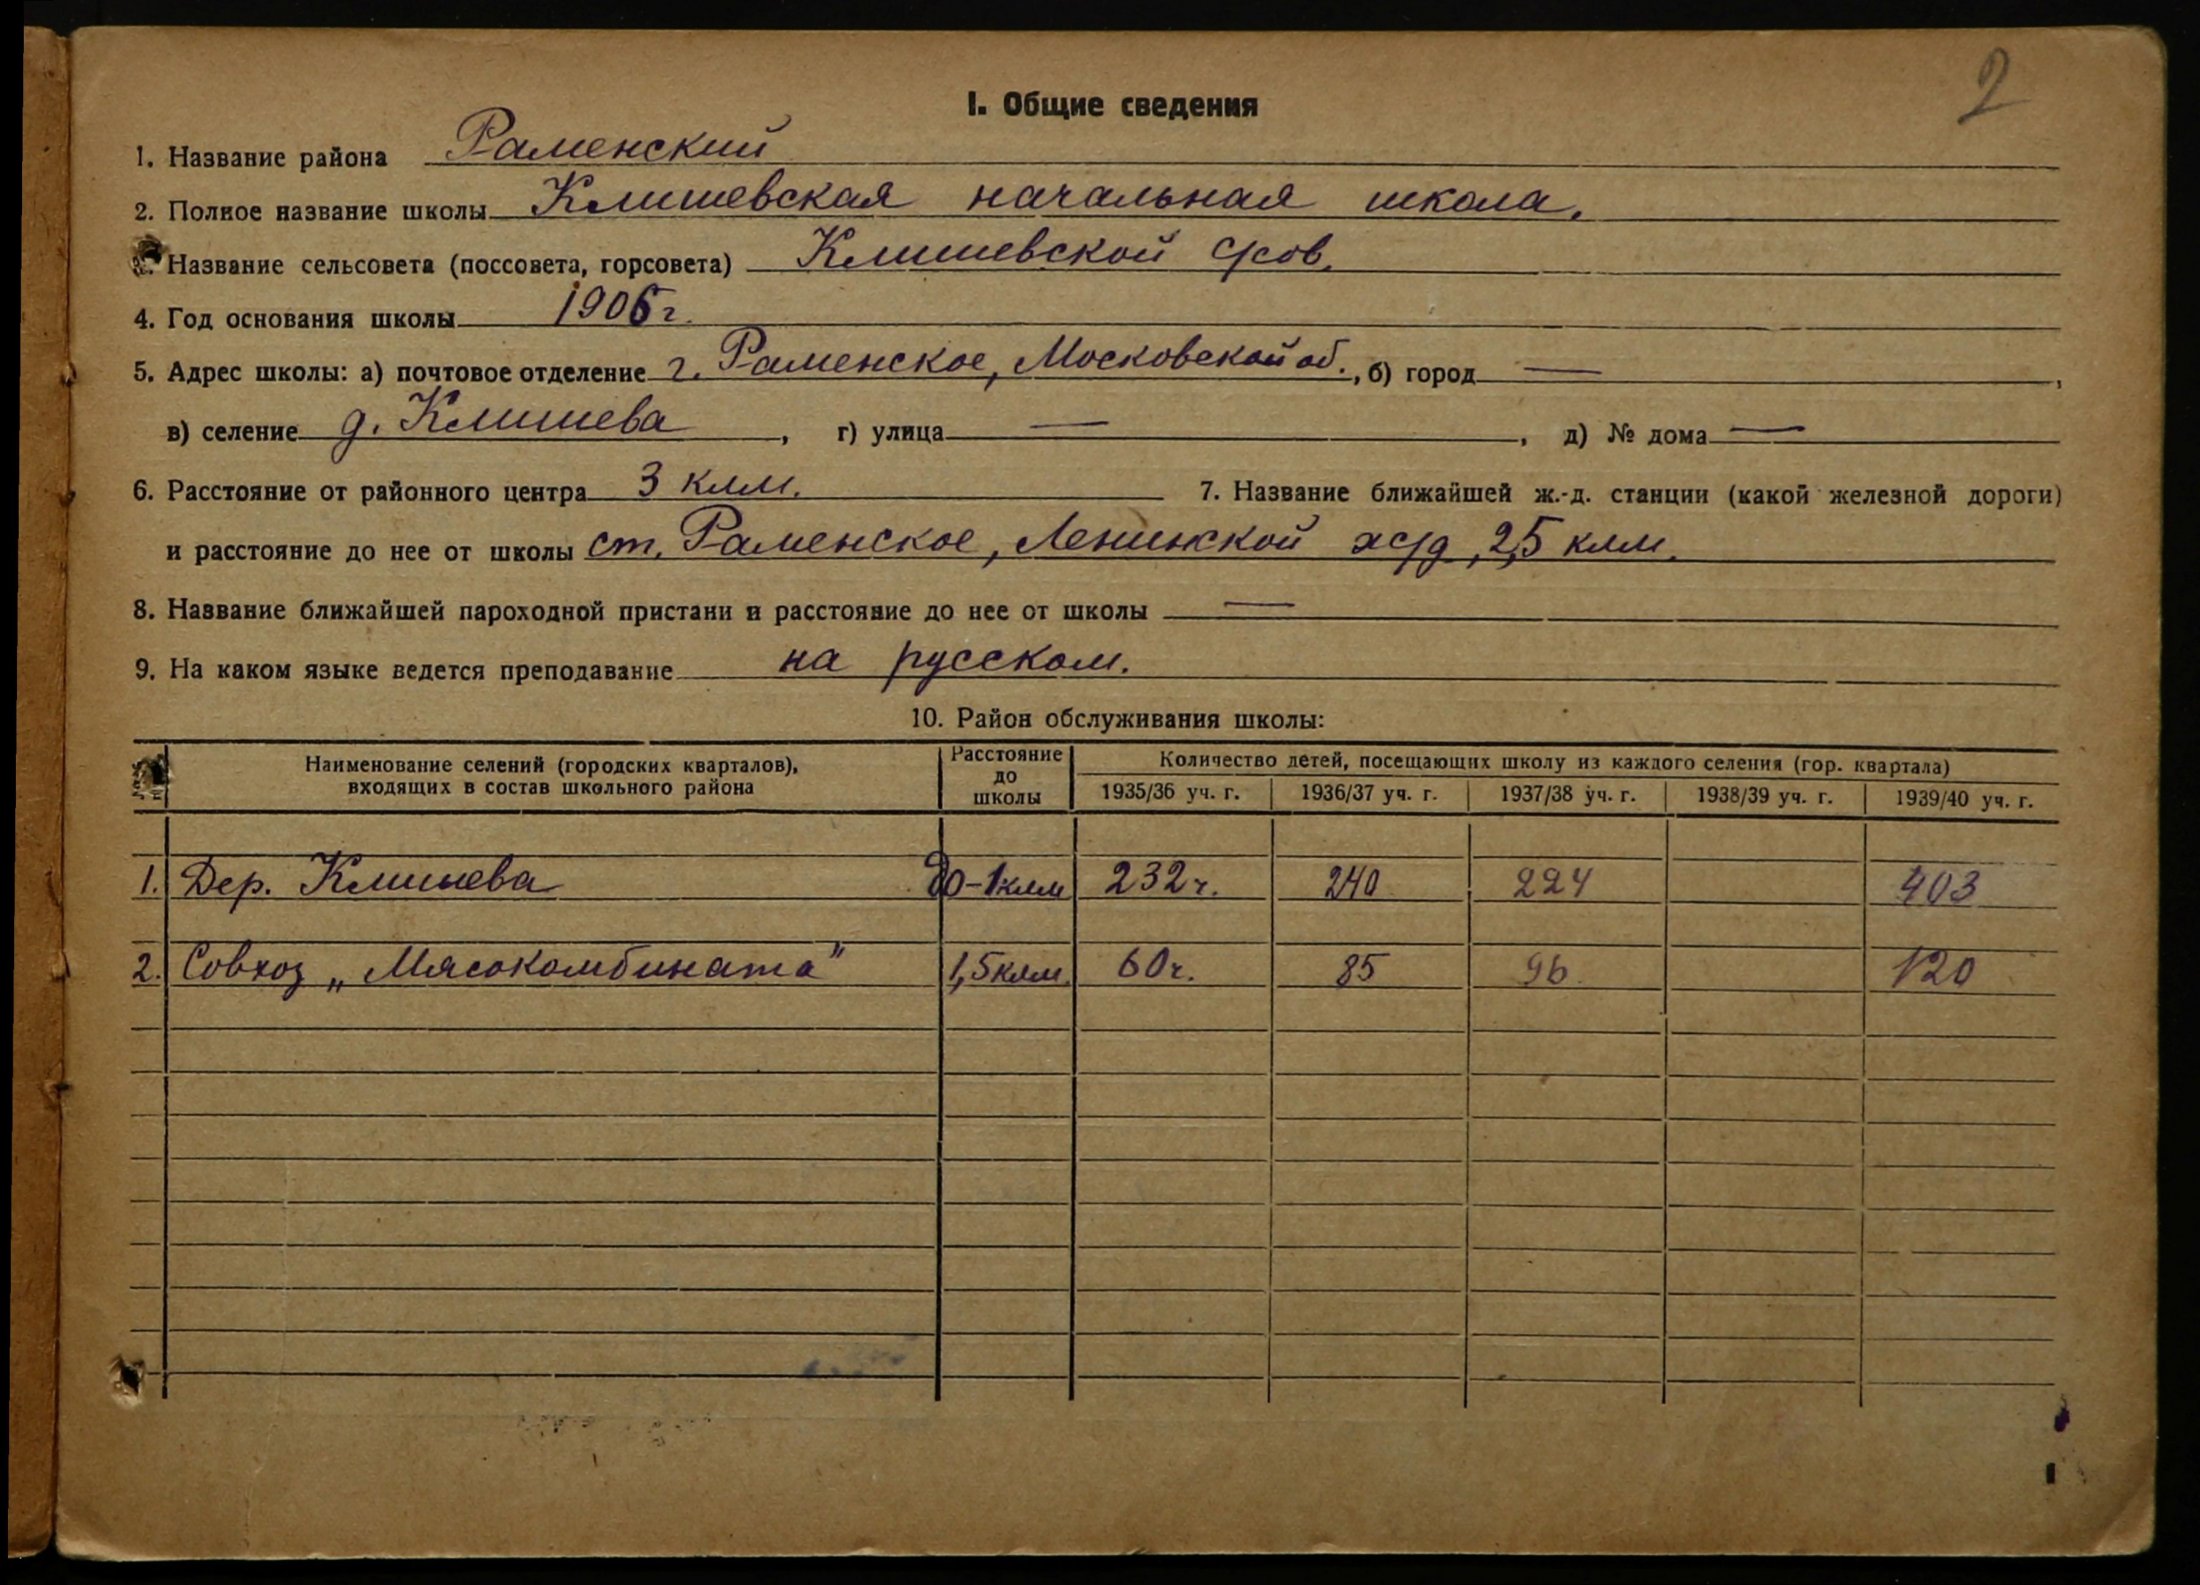 2
I. Общие сведения
1. Название района Раменский
2. Полное название школы Клишевская начальная школа.
Название сельсовета (поссовета, горсовета) Клишевской с/сов.
4. Год основания школы 1906 г.
5. Адрес школы: а) почтовое отделение г. Раменское, Московской об., б) город —,
в) селение д. Клишева, г) улица —, д) № дома —
6. Расстояние от районного центра 3 клм. 7. Название ближайшей ж.-д. станции (какой железной дороги)
и расстояние до нее от школы ст. Раменское, Ленинской ж/д, 2,5 клм.
8. Название ближайшей пароходной пристани и расстояние до нее от школы —
9. На каком языке ведется преподавание на русском.
10. Район обслуживания школы:
Наименование селений (городских кварталов), входящих в состав школьного района | Расстояние до школы | Количество детей, посещающих школу из каждого селения (гор. квартала)
1935/36 уч. г. | 1936/37 уч. г. | 1937/38 уч. г. | 1938/39 уч. г. | 1939/40 уч. г.
1. Дер. Клишева | до-1 клм | 232 ч. | 240 | 224 | | 403
2. Совхоз „Мясокомбината" | 1,5 клм. | 60 ч. | 85 | 96 | | 120